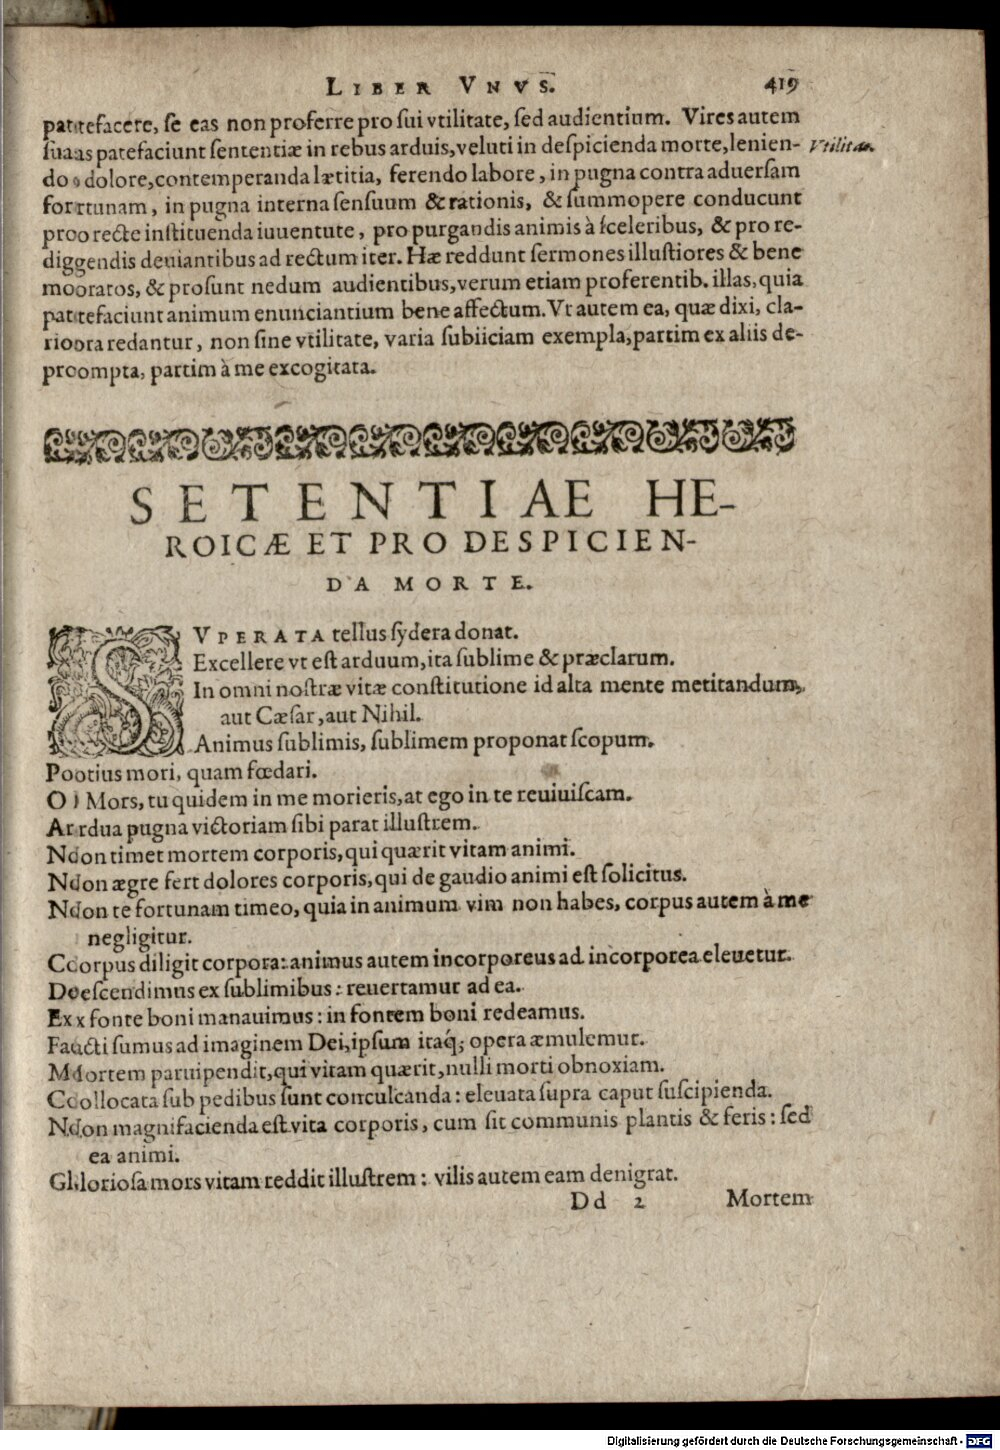 LIBER VNVS. 419
patefacere, se eas non proferre pro sui vtilitate, sed audientium. Vires autem
suas patefaciunt sententiæ in rebus arduis, veluti in despicienda morte, lenien- Vtilitas.
do dolore, contemperanda lætitia, ferendo labore, in pugna contra aduersam
fortunam, in pugna interna sensuum & rationis, & summopere conducunt
pro recte instituenda iuuentute, pro purgandis animis à sceleribus, & pro re-
digendis deuiantibus ad rectum iter. Hæ reddunt sermones illustiores & bene
moratos, & prosunt nedum audientibus, verum etiam proferentib. illas, quia
patefaciunt animum enunciantium bene affectum. Vt autem ea, quæ dixi, cla-
riora redantur, non sine vtilitate, varia subiiciam exempla, partim ex aliis de-
prompta, partim à me excogitata.
SETENTIAE HE-
ROICÆ ET PRO DESPICIEN-
DA MORTE.
SVPERATA tellus sydera donat.
Excellere vt est arduum, ita sublime & præclarum.
In omni nostræ vitæ constitutione id alta mente metitandum,
aut Cæsar, aut Nihil.
Animus sublimis, sublimem proponat scopum.
Potius mori, quam fœdari.
O Mors, tu quidem in me morieris, at ego in te reuiuiscam.
Ardua pugna victoriam sibi parat illustrem.
Non timet mortem corporis, qui quærit vitam animi.
Non ægre fert dolores corporis, qui de gaudio animi est solicitus.
Non te fortunam timeo, quia in animum vim non habes, corpus autem à me
negligitur.
Corpus diligit corpora: animus autem incorporeus ad incorporea eleuetur.
Descendimus ex sublimibus: reuertamur ad ea.
Ex fonte boni manauimus: in fontem boni redeamus.
Facti sumus ad imaginem Dei, ipsum itaq; opera æmulemur.
Mortem paruipendit, qui vitam quærit, nulli morti obnoxiam.
Collocata sub pedibus sunt conculcanda: eleuata supra caput suscipienda.
Non magnifacienda est vita corporis, cum sit communis plantis & feris: sed
ea animi.
Gloriosa mors vitam reddit illustrem: vilis autem eam denigrat.
Dd 2 Mortem
Digitalisierung gefördert durch die Deutsche Forschungsgemeinschaft - DFG